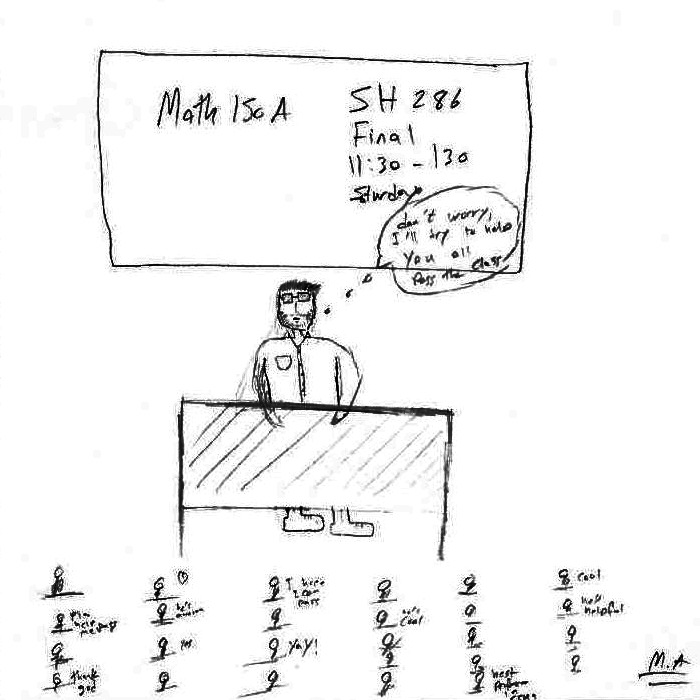 Math 150A
SH 286
Final
11:30 - 130
Sturday
don't worry,
I'll try to help
you all
pass the class
cool
I hope
I can
pass
he's
helpful
he's
cool
Yes
YaY!
thank
god
best
M.A